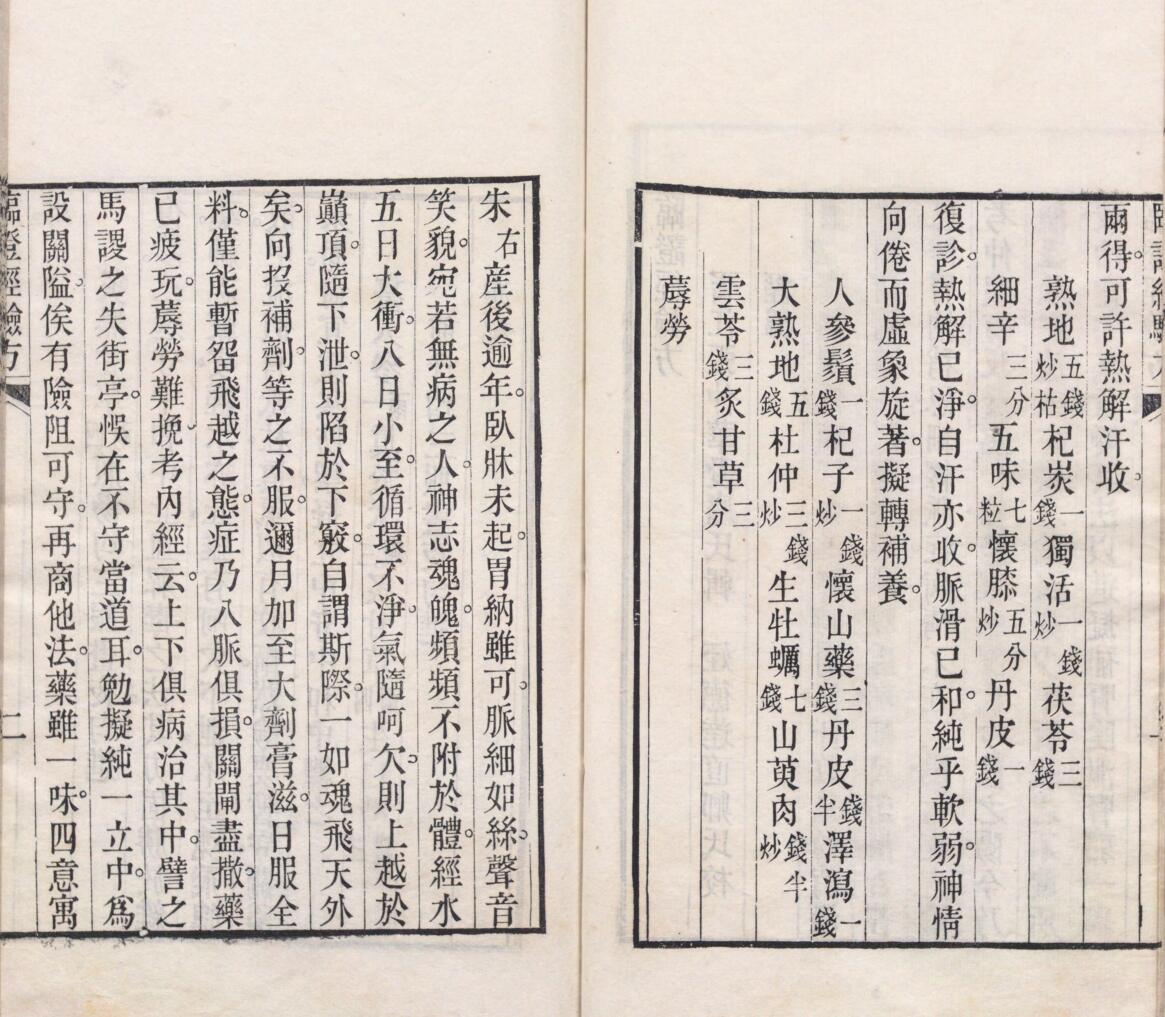 兩得。可許熱解汗收。
熟地五錢炒枯杞炭一錢獨活一錢炒茯苓三錢
細辛三分五味七粒懷膝五分炒丹皮一錢
復診。熱解已淨。自汗亦收。脈滑已和。純乎軟弱。神情
向倦而虛象旋著。擬轉補養。
人參鬚一錢杞子一錢炒懷山藥三錢丹皮錢半澤瀉一錢
大熟地五錢杜仲三錢炒生牡蠣七錢山萸肉錢半炒
雲苓三錢炙甘草三分
蓐勞
朱右產後逾年。臥牀未起。胃納雖可。脈細如絲。聲音
笑貌。宛若無病之人。神志魂魄。頻頻不附於體。經水
五日大衝。八日小至。循環不淨。氣隨呵欠。則上越於
巔頂。隨下泄。則陷於下竅。自謂斯際。一如魂飛天外
矣。向投補劑。等之不服。邇月加至大劑膏滋。日服全
料。僅能暫畱飛越之態。症乃八脈俱損。關閘盡撤。藥
已疲玩。蓐勞難挽。考內經云。上下俱病治其中。譬之
馬謖之失街亭。悞在不守當道耳。勉擬純一立中。爲
設關隘。俟有險阻可守。再商他法。藥雖一味。四意寓
臨證經驗方
二